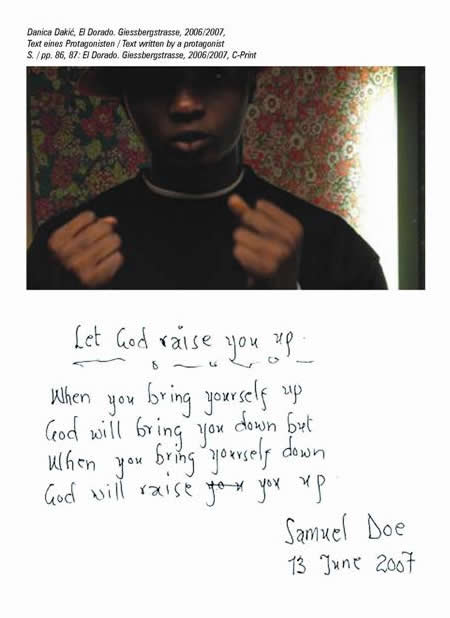 Danica Dakić, El Dorado. Giessbergstrasse, 2006/2007,
Text eines Protagonisten / Text written by a protagonist
S. / pp. 86, 87: El Dorado. Giessbergstrasse, 2006/2007, C-Print
Let God raise you up.
When you bring yourself up
God will bring you down but
When you bring yourself down
God will raise you you up.
Samuel Doe
13 June 2007